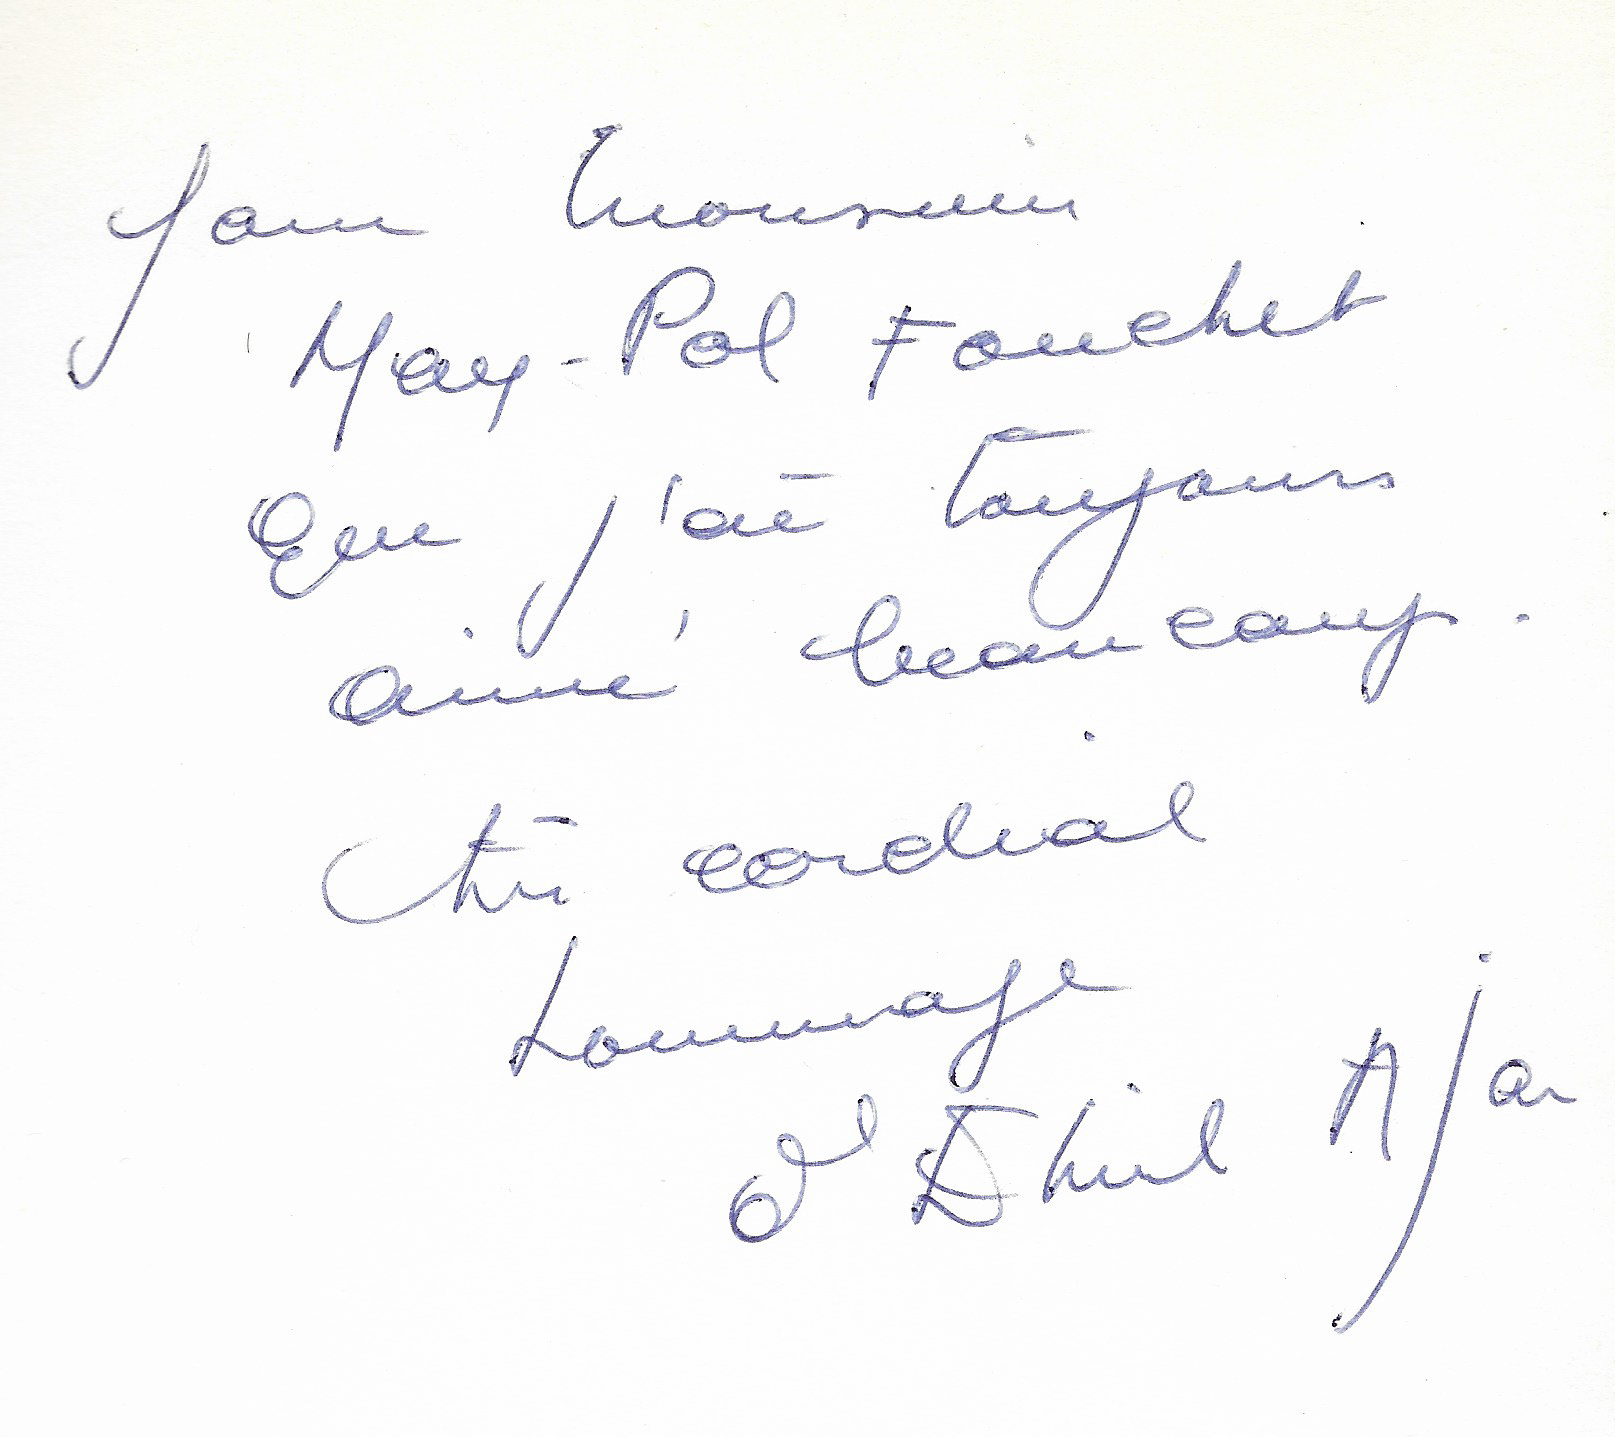 Pour Monsieur
Max-Pol Fouchet
Que j'ai toujours
aimé beaucoup.
très cordial
hommage
d'Émile Ajar